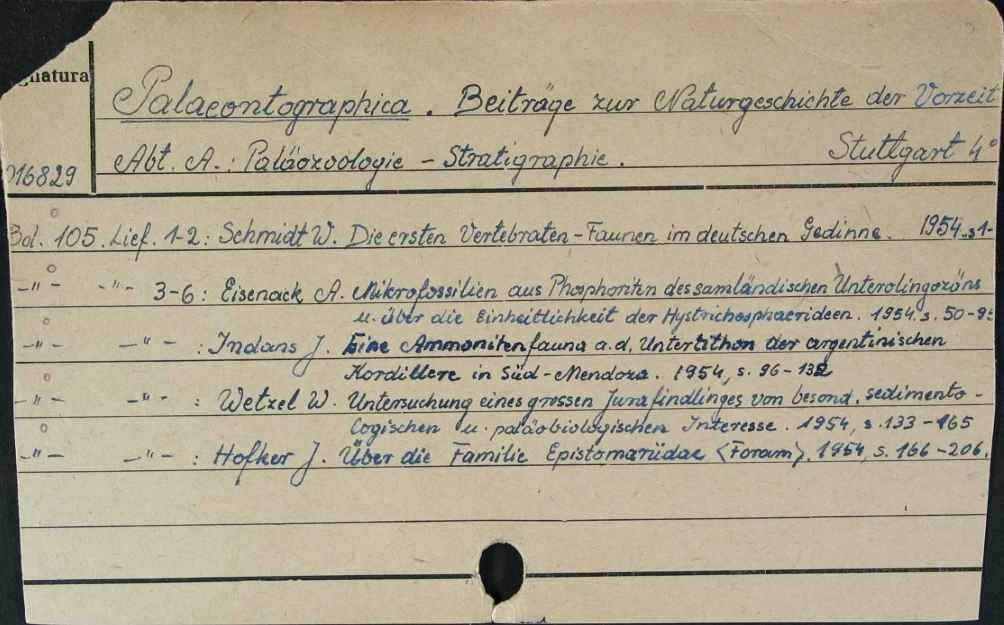 gnatura
Palaeontographica. Beiträge zur Naturgeschichte der Vorzeit
Abt. A.: Paläozoologie - Stratigraphie. Stuttgart 4°
016829
Bd. 105. Lief. 1-2: Schmidt W. Die ersten Vertebraten-Faunen im deutschen Gedinne. 1954. s 1-
-"- -"- 3-6: Eisenack A. Mikrofossilien aus Phosphoriten des samländischen Unteroligozäns
u. über die Einheitlichkeit der Hystrichosphaerideen. 1954, s. 50-95
-"- -"- : Indans J. Eine Ammonitenfauna a.d. Untertithon der argentinischen
Kordillere in Süd-Mendoza. 1954, s. 96-132
-"- -"- : Wetzel W. Untersuchung eines grossen Jurafindlinges von besond. sedimento-
logischen u. paläobiologischen Interesse. 1954, s. 133-165
-"- -"- : Hofker J. Über die Familie Epistomariidae <Foram>. 1954, s. 166-206.